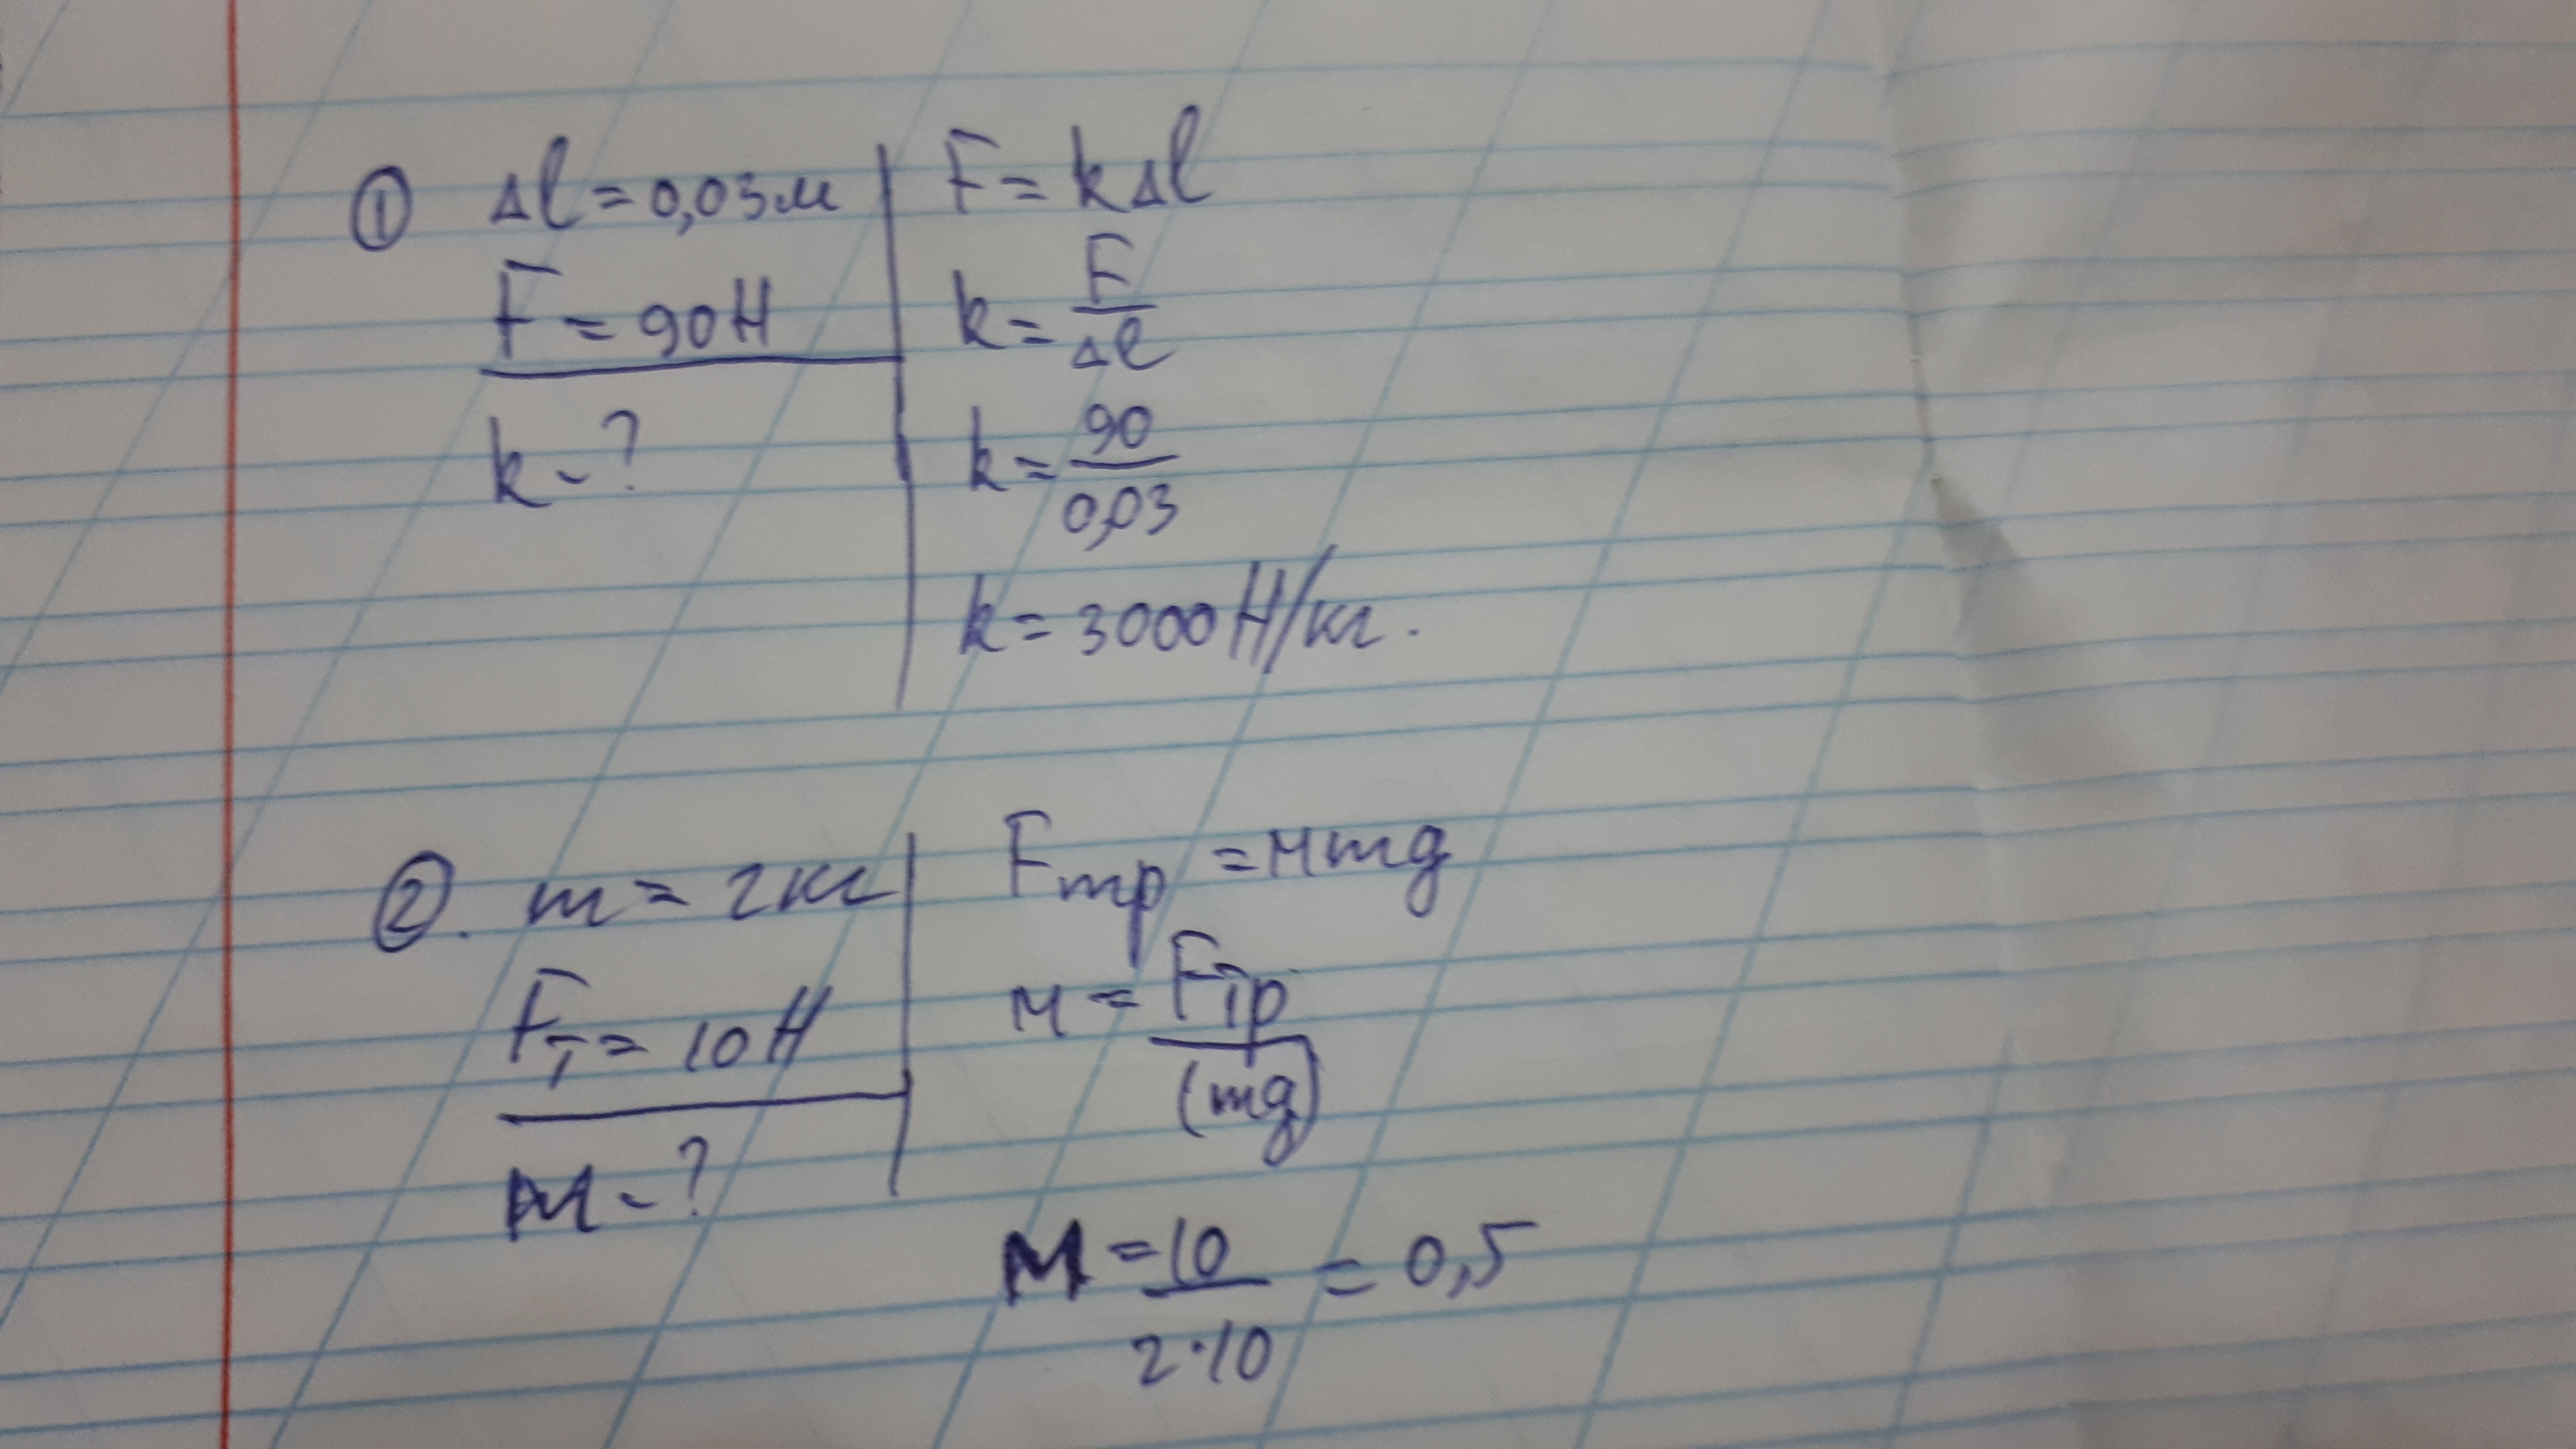 ① Δl = 0,03м
F = 90Н
k - ?
F = kΔl
k = F/Δl
k = 90/0,03
k = 3000 Н/кг.
②. m = 2кг
Fт = 10Н
М - ?
Fтр = мmg
м = Fтр/(mg)
М = 10/2·10 = 0,5